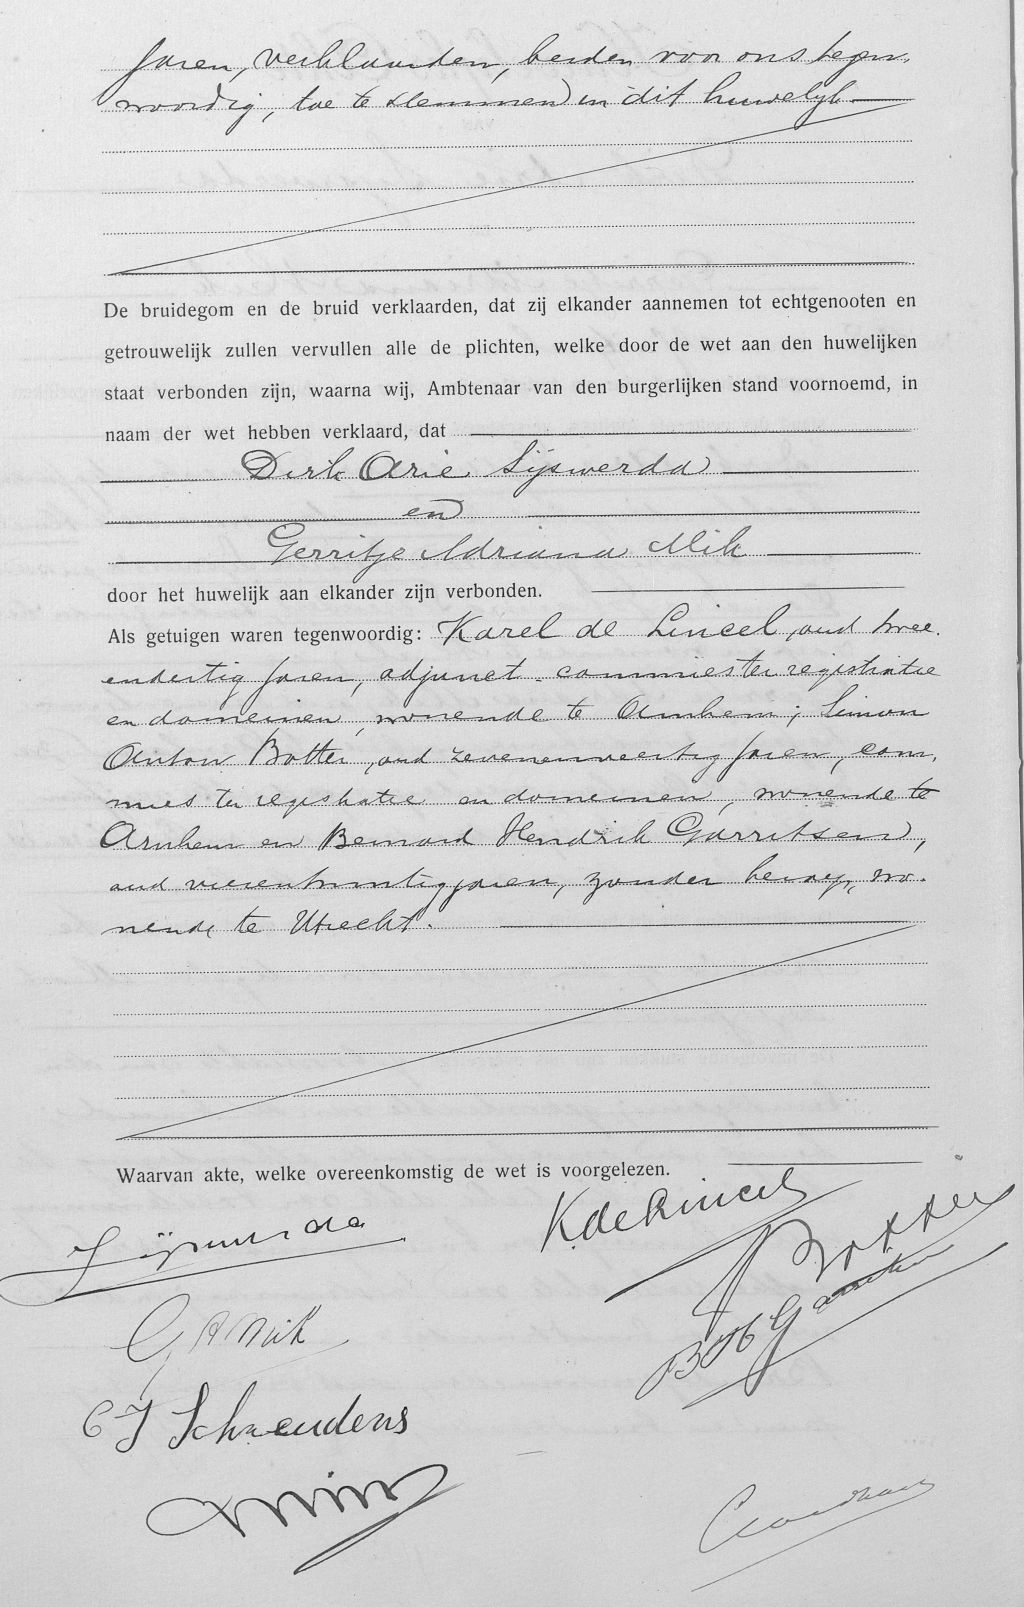 jaren, verklaarden, beiden voor ons tegen-
woordig, toe te stemmen in dit huwelijk
De bruidegom en de bruid verklaarden, dat zij elkander aannemen tot echtgenooten en
getrouwelijk zullen vervullen alle de plichten, welke door de wet aan den huwelijken
staat verbonden zijn, waarna wij, Ambtenaar van den burgerlijken stand voornoemd, in
naam der wet hebben verklaard, dat
Dirk Arie Sijswerda
en
Gerritje Adriana Mik
door het huwelijk aan elkander zijn verbonden.
Als getuigen waren tegenwoordig: Karel de Lincel, oud twee
endertig jaren, adjunct-commies ter registratie
en domeinen, wonende te Arnhem; Simon
Anton Botter, oud zevenenveertig jaren, com-
mies ter registratie en domeinen, wonende te
Arnhem en Bernard Hendrik Garritsen,
oud vierentwintig jaren, zonder beroep, wo-
nende te Utrecht.
Waarvan akte, welke overeenkomstig de wet is voorgelezen.
Sijswerda
K de Lincel
Botter
BH Garritsen
G A Mik
C J Schreuders